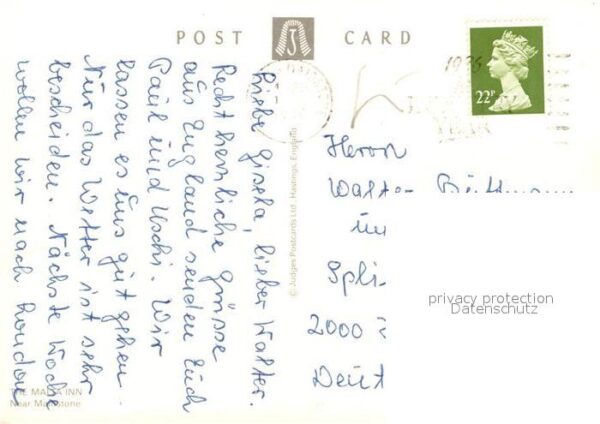 POST CARD
1986
22P
YEAR
Liebe Gisela, lieber Walter.
Recht herzliche Grüsse
aus England senden Euch
Paul und Uschi. Wir
lassen es uns gut gehen.
Nur das Wetter ist sehr
bescheiden. Nächste Woche
wollen wir nach London
© Judges Postcards Ltd., Hastings, England
Herrn
Walter
Spli
2000
Deut
privacy protection
Datenschutz
THE MALTA INN
Near Maidstone